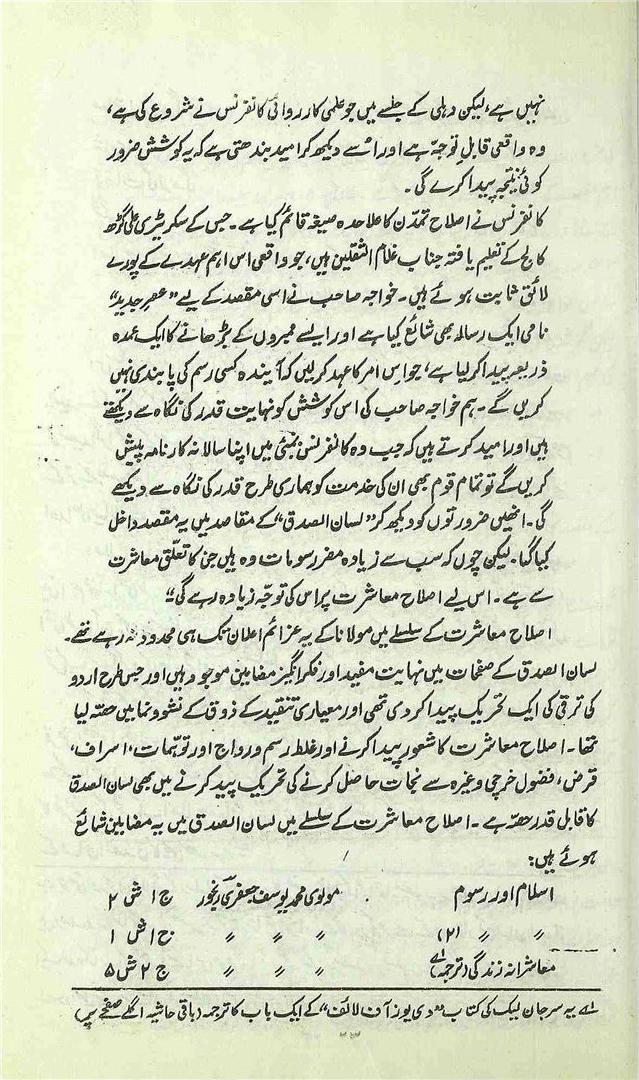 نہیں ہے، لیکن دہلی کے جلسے میں جو علمی کارروائی کانفرنس نے شروع کی ہے،
وہ واقعی قابلِ توجہ ہے اور اسے دیکھ کر امید بندھتی ہے کہ یہ کوشش ضرور
کوئی نتیجہ پیدا کرے گی۔
کانفرنس نے اصلاح تمدّن کا علاحدہ صیغہ قائم کیا ہے۔ جس کے سکریٹری علی گڑھ
کالج کے تعلیم یافتہ جناب غلام الثقلین ہیں، جو واقعی اس اہم عہدے کے پورے
لائق ثابت ہوئے ہیں۔ خواجہ صاحب نے اسی مقصد کے لیے "عصرِ جدید"
نامی ایک رسالہ بھی شائع کیا ہے اور ایسے ممبروں کے بڑھانے کا ایک عمدہ
ذریعہ پیدا کر لیا ہے، جو اس امر کا عہد کر لیں کہ آیندہ کسی رسم کی پابندی نہیں
کریں گے۔ ہم خواجہ صاحب کی اس کوشش کو نہایت قدر کی نگاہ سے دیکھتے
ہیں اور امید کرتے ہیں کہ جب وہ کانفرنس بمبئی میں اپنا سالانہ کارنامہ پیش
کریں گے تو تمام قوم بھی ان کی خدمت کو ہماری طرح قدر کی نگاہ سے دیکھے
گی۔ انھیں ضرورتوں کو دیکھ کر "لسان الصدق" کے مقاصد میں یہ مقصد داخل
کیا گیا۔ لیکن چوں کہ سب سے زیادہ مضر رسومات وہ ہیں جن کا تعلّق معاشرت
سے ہے۔ اس لیے اصلاح معاشرت پر اس کی توجّہ زیادہ رہے گی"
اصلاح معاشرت کے سلسلے میں مولانا کے یہ عزائم اعلان تک ہی محدود نہ رہے تھے۔
لسان الصدق کے صفحات میں نہایت مفید اور فکر انگیز مضامین موجود ہیں اور جس طرح اردو
کی ترقی کی ایک تحریک پیدا کر دی تھی اور معیاری تنقید کے ذوق کے نشوونما میں حصّہ لیا
تھا۔ اصلاح معاشرت کا شعور پیدا کرنے اور غلط رسم و رواج اور توہّمات، اسراف،
قرض، فضول خرچی وغیرہ سے نجات حاصل کرنے کی تحریک پیدا کرنے میں بھی لسان الصدق
کا قابل قدر حصّہ ہے۔ اصلاح معاشرت کے سلسلے میں لسان الصدق میں یہ مضامین شائع
ہوئے ہیں:
اسلام اور رسوم مولوی محمد یوسف جعفری رنجور ج ۱ ش ۲
〃 〃 (۲) 〃 〃 〃 ج ۱ ش ۱
معاشرانہ زندگی (ترجمہ)۱ 〃 〃 〃 ج ۲ ش ۵
۱ یہ سر جان لبک کی کتاب "دی یوز آف لائف" کے ایک باب کا ترجمہ (باقی حاشیہ اگلے صفحے پر)